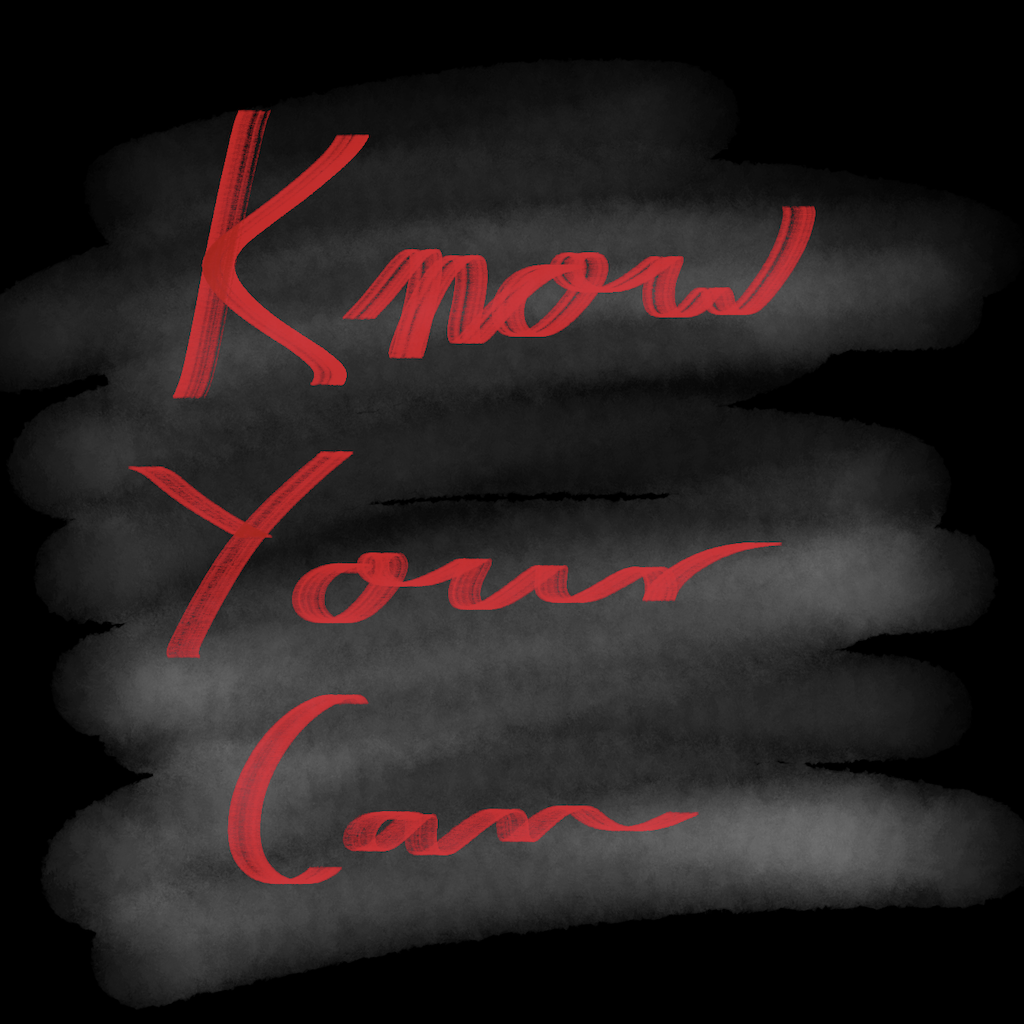 Know
Your
Can